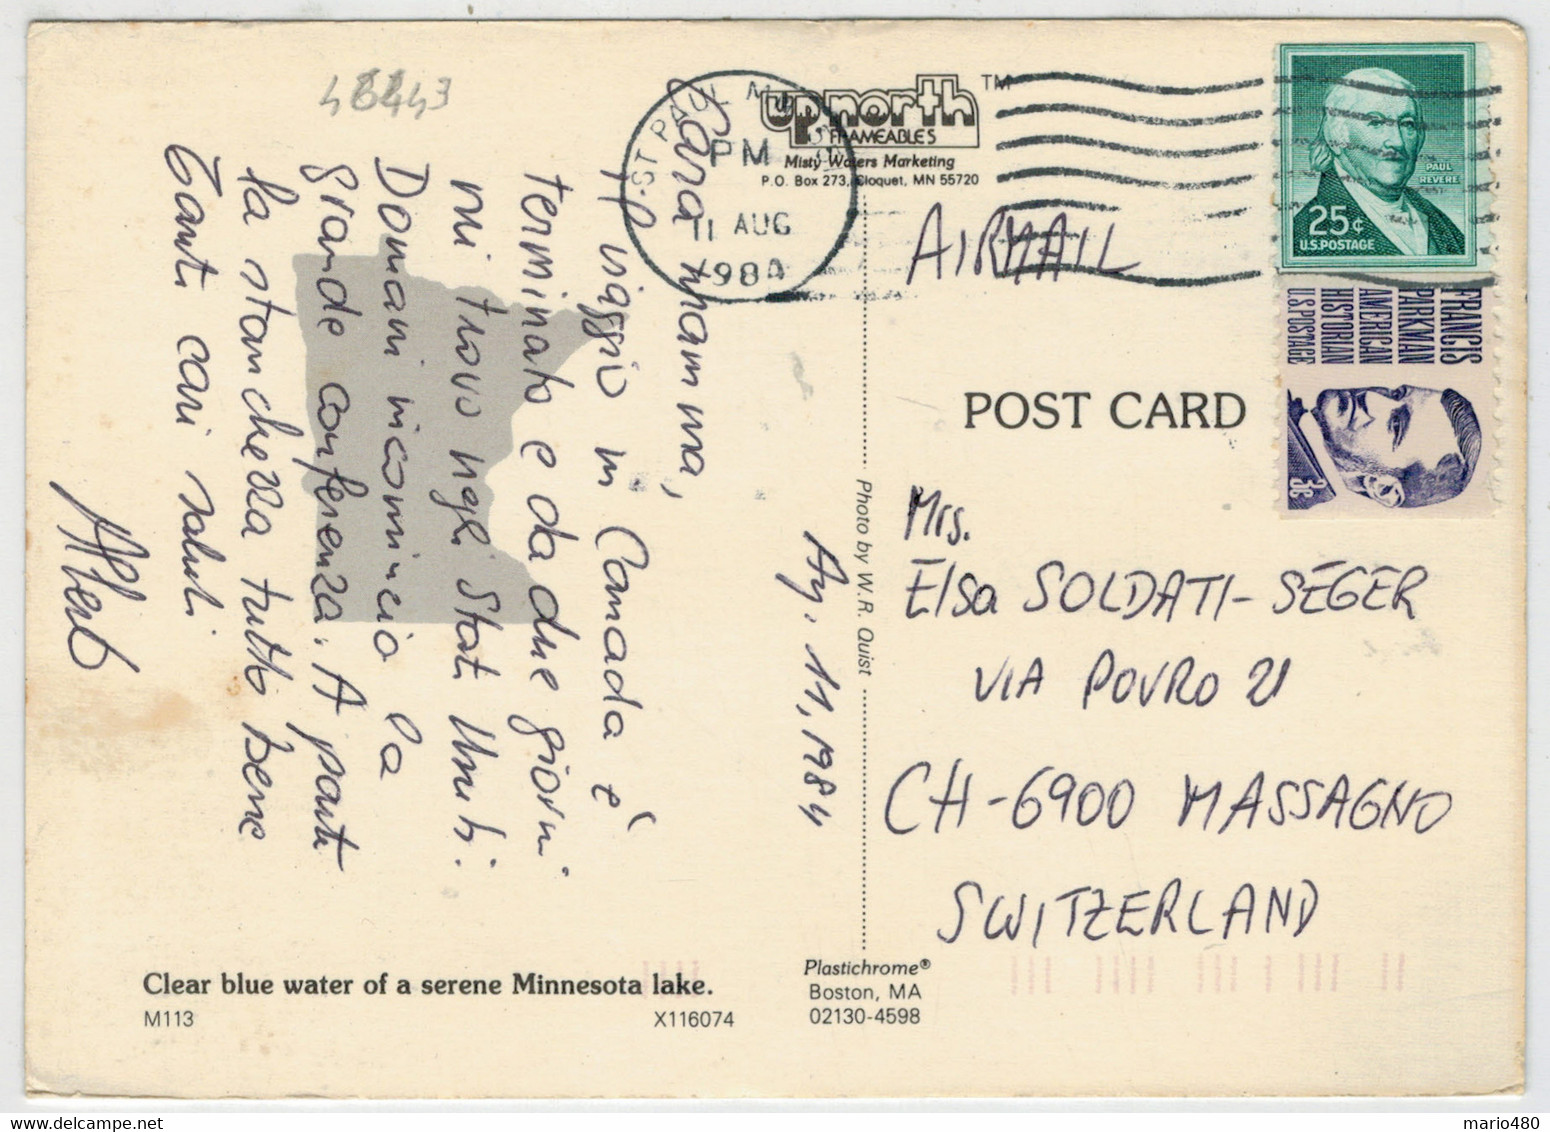 48443
Cara mamma,
il viaggio in Canada è
terminato e da due giorni
mi trovo negli Stati Uniti.
Domani incomincio la
grande conferenza. A parte
la stanchezza tutto bene
Tanti cari saluti
Albert
Ag. 11, 1984
ST PAUL MN
PM
11 AUG
1984
up north TM
FRAMEABLES
Misty Waters Marketing
P.O. Box 273, Cloquet, MN 55720
AIRMAIL
PAUL
REVERE
25¢
U.S. POSTAGE
FRANCIS
PARKMAN
AMERICAN
HISTORIAN
U.S. POSTAGE
3¢
POST CARD
Photo by W.R. Quist
Mrs.
Elsa SOLDATI-SEGER
VIA POVRO 21
CH-6900 MASSAGNO
SWITZERLAND
Clear blue water of a serene Minnesota lake.
M113
X116074
Plastichrome®
Boston, MA
02130-4598
mario480